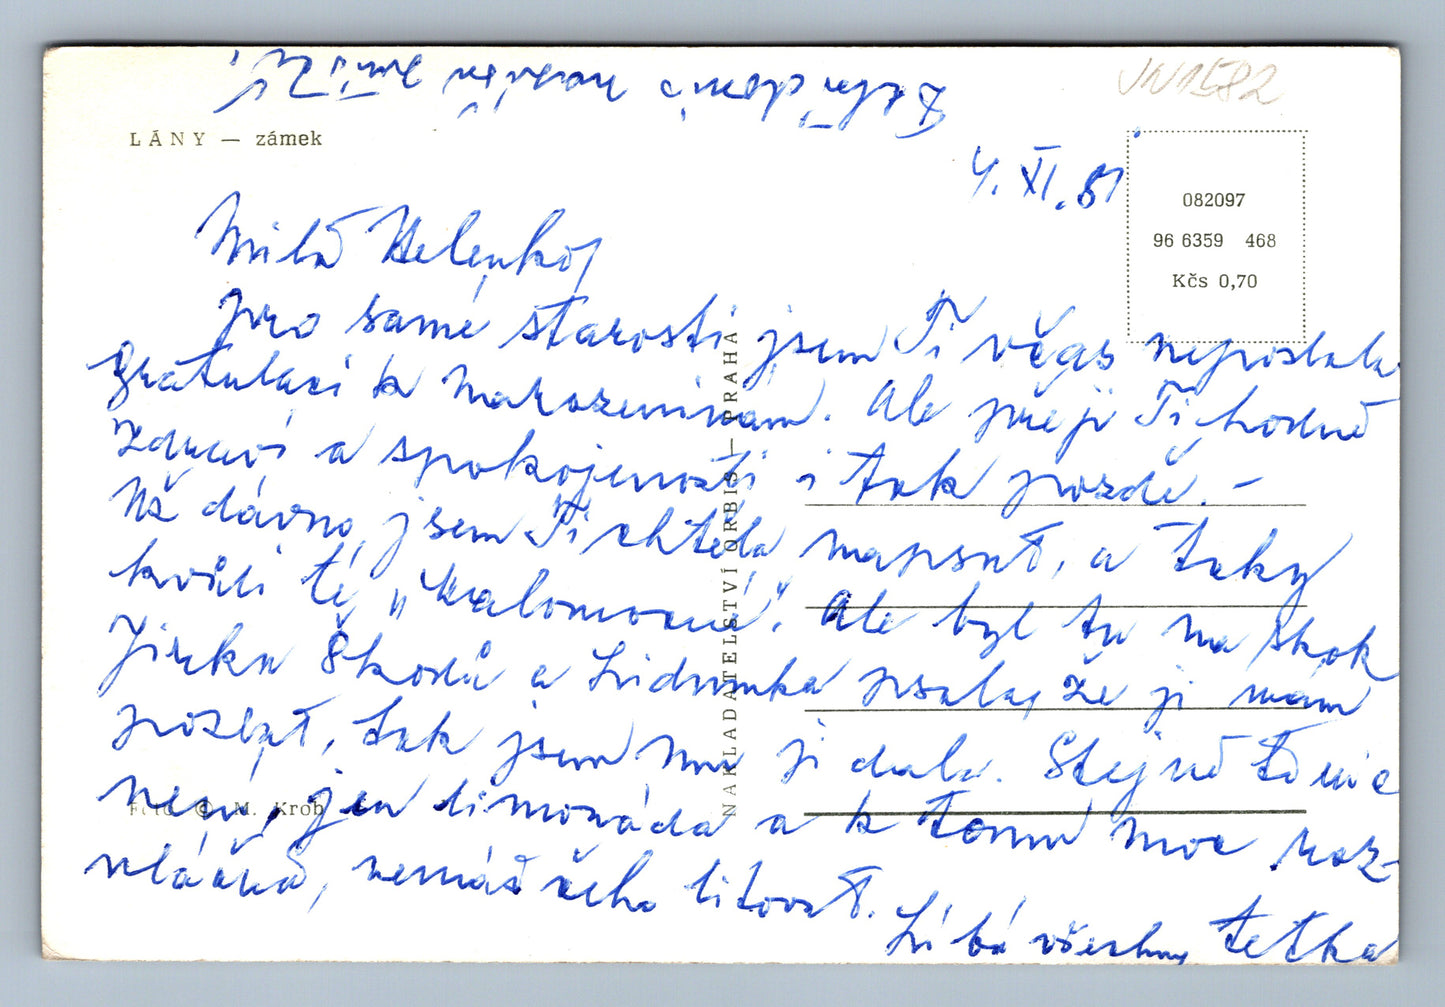 LÁNY — zámek
4. XI. 81
082097
96 6359 468
Kčs 0,70
Milá Helenko,
pro samé starosti jsem Ti včas neposlala
gratulaci k narozeninám. Ale přeji Ti hodně
zdraví a spokojenosti i tak pozdě. –
Už dávno jsem Ti chtěla napsat, a taky
kvůli té „Malomocné". Ale byl tu na skok
Jirka Škodů a Lidunka psala, že ji mám
pozvat, tak jsem mu ji dala. Stejně to nic
není, jen limonáda a k tomu moc roz-
vláčná, nemáš čeho litovat.
Líbá všechny tetka
NAKLADATELSTVÍ ORBIS — PRAHA
Foto © M. Krob